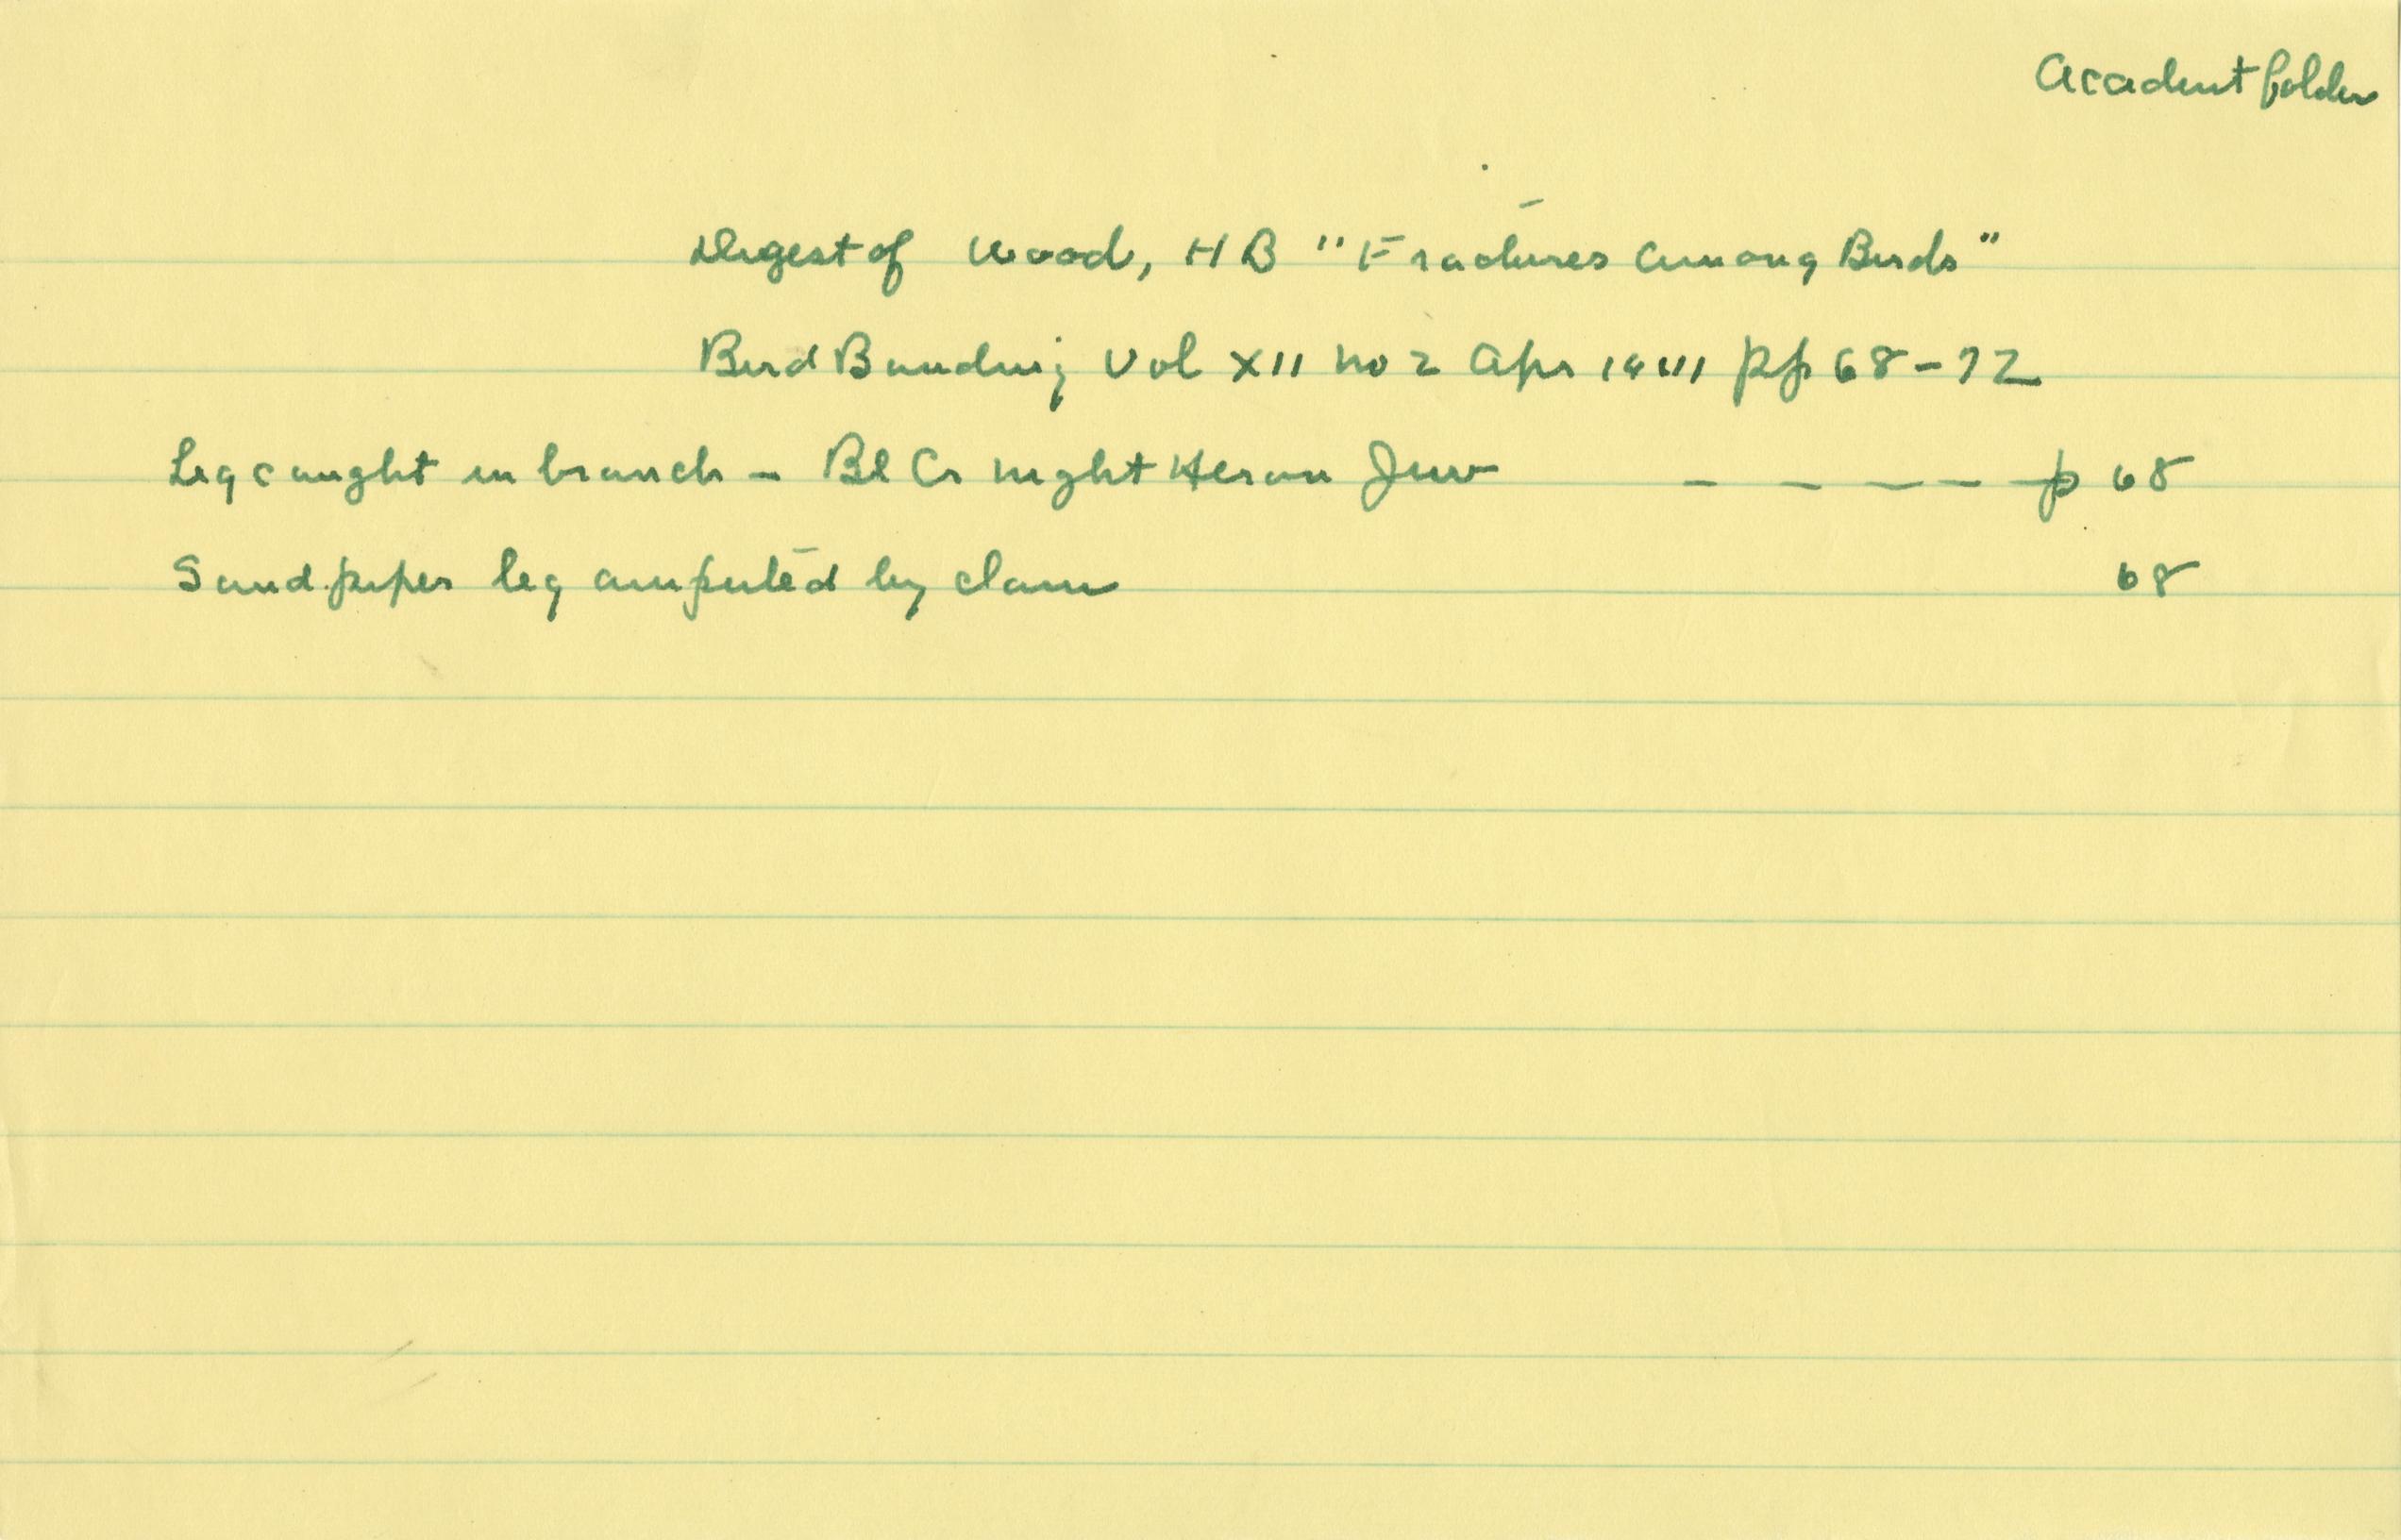 Accident folder
Digest of Wood, HB "Fractures Among Birds"
Bird Banding Vol XII no 2 Apr 1941 pp 68-72
Leg caught in branch - Bl Cr Night Heron Juv - - - - - p 68
Sandpiper leg amputed by clam 68